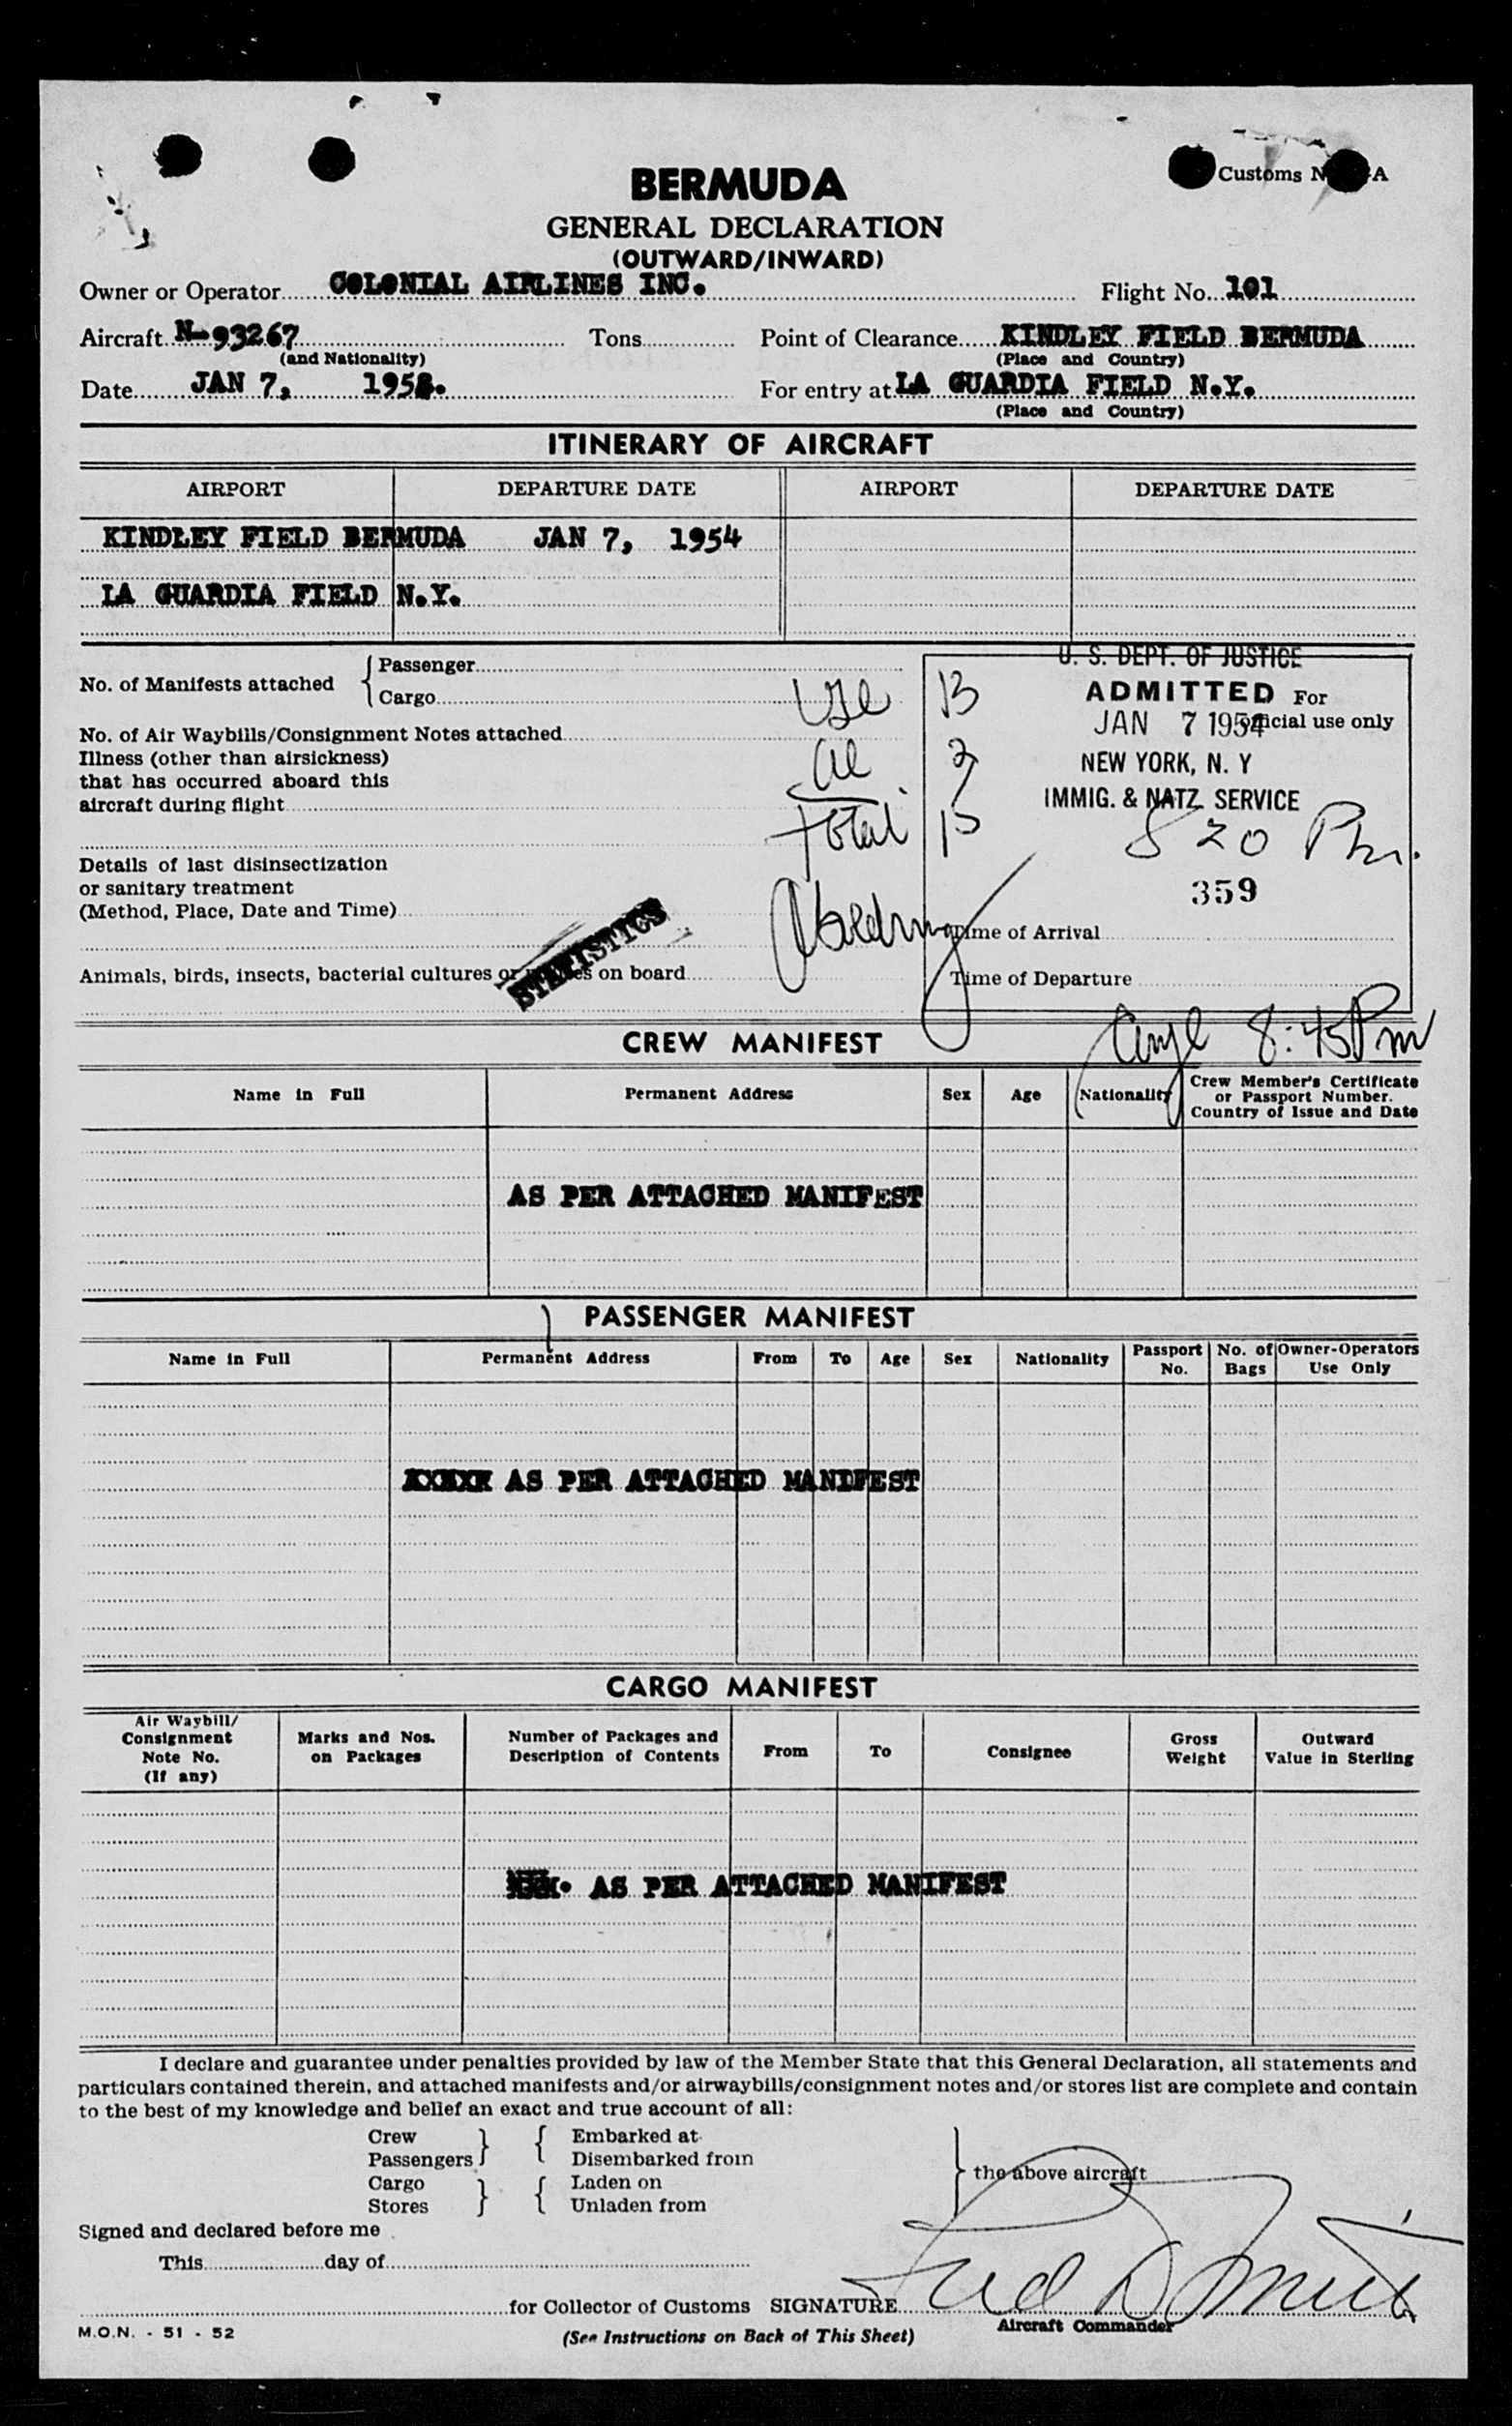 Customs N A
BERMUDA
GENERAL DECLARATION
(OUTWARD/INWARD)
Owner or Operator COLONIAL AIRLINES INC. Flight No. 101
Aircraft N-93267 Tons Point of Clearance KINDLEY FIELD BERMUDA
(and Nationality) (Place and Country)
Date JAN 7, 195 . For entry at LA GUARDIA FIELD N.Y.
(Place and Country)
ITINERARY OF AIRCRAFT
AIRPORT DEPARTURE DATE AIRPORT DEPARTURE DATE
KINDLEY FIELD BERMUDA JAN 7, 1954
LA GUARDIA FIELD N.Y.
No. of Manifests attached { Passenger
Cargo
No. of Air Waybills/Consignment Notes attached
Illness (other than airsickness)
that has occurred aboard this
aircraft during flight
Details of last disinsectization
or sanitary treatment
(Method, Place, Date and Time)
Animals, birds, insects, bacterial cultures or on board
STATISTICS
USC 13
al 2
Total 15
U. S. DEPT. OF JUSTICE
ADMITTED For
JAN 7 1954 official use only
NEW YORK, N. Y
IMMIG. & NATZ. SERVICE
8 20 Pm.
359
Time of Arrival
Time of Departure
8:45 Pm
CREW MANIFEST
Name in Full Permanent Address Sex Age Nationality Crew Member's Certificate
or Passport Number.
Country of Issue and Date
AS PER ATTACHED MANIFEST
PASSENGER MANIFEST
Name in Full Permanent Address From To Age Sex Nationality Passport No. No. of Bags Owner-Operators Use Only
AS PER ATTACHED MANIFEST
CARGO MANIFEST
Air Waybill/
Consignment
Note No.
(If any)
Marks and Nos.
on Packages
Number of Packages and
Description of Contents
From To Consignee
Gross
Weight
Outward
Value in Sterling
AS PER ATTACHED MANIFEST
I declare and guarantee under penalties provided by law of the Member State that this General Declaration, all statements and
particulars contained therein, and attached manifests and/or airwaybills/consignment notes and/or stores list are complete and contain
to the best of my knowledge and belief an exact and true account of all:
Crew } { Embarked at
Passengers } { Disembarked from } the above aircraft
Cargo } { Laden on
Stores } { Unladen from
Signed and declared before me
This day of
for Collector of Customs SIGNATURE
Aircraft Commander
M.O.N. - 51 - 52 (See Instructions on Back of This Sheet)